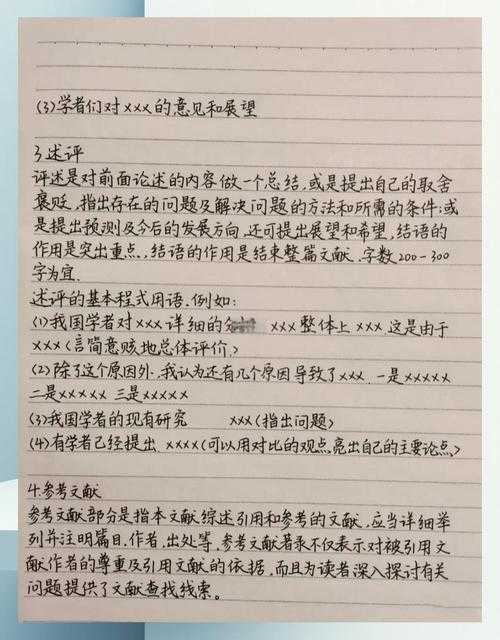 (3)学者们对xxx的意见和展望
3.述评
评述是对前面论述的内容做一个总结,或是提出自己的取舍
褒贬,指出存在的问题及解决问题的方法和所需的条件;或
是提出预测及今后的发展方向,还可提出展望和希望,结语的
作用是突出重点,结语的作用是结束整篇文献.字数200-300
字为宜.
述评的基本程式用语.例如:
(1)我国学者对xxx详细的 xxx整体上xxx这是由于
xxx(言简意赅地总体评价)
(2)除了这个原因外.我认为还有几个原因导致了xxx.一是xxxxx
二是xxxxx 三是xxxxx
(3)我国学者的现有研究 xxx(指出问题)
(4)有学者已经提出.xxxx(可以用对比的观点,亮出自己的主要论点)
4.参考文献
参考文献部分是指本文献综述引用和参考的文献,应当详细举
列并注明篇目.作者.出处等.参考文献著录不仅表示对被引用文
献作者的尊重及引用文献的依据,而且为读者深入探讨有关
问题提供了文献查找线索。